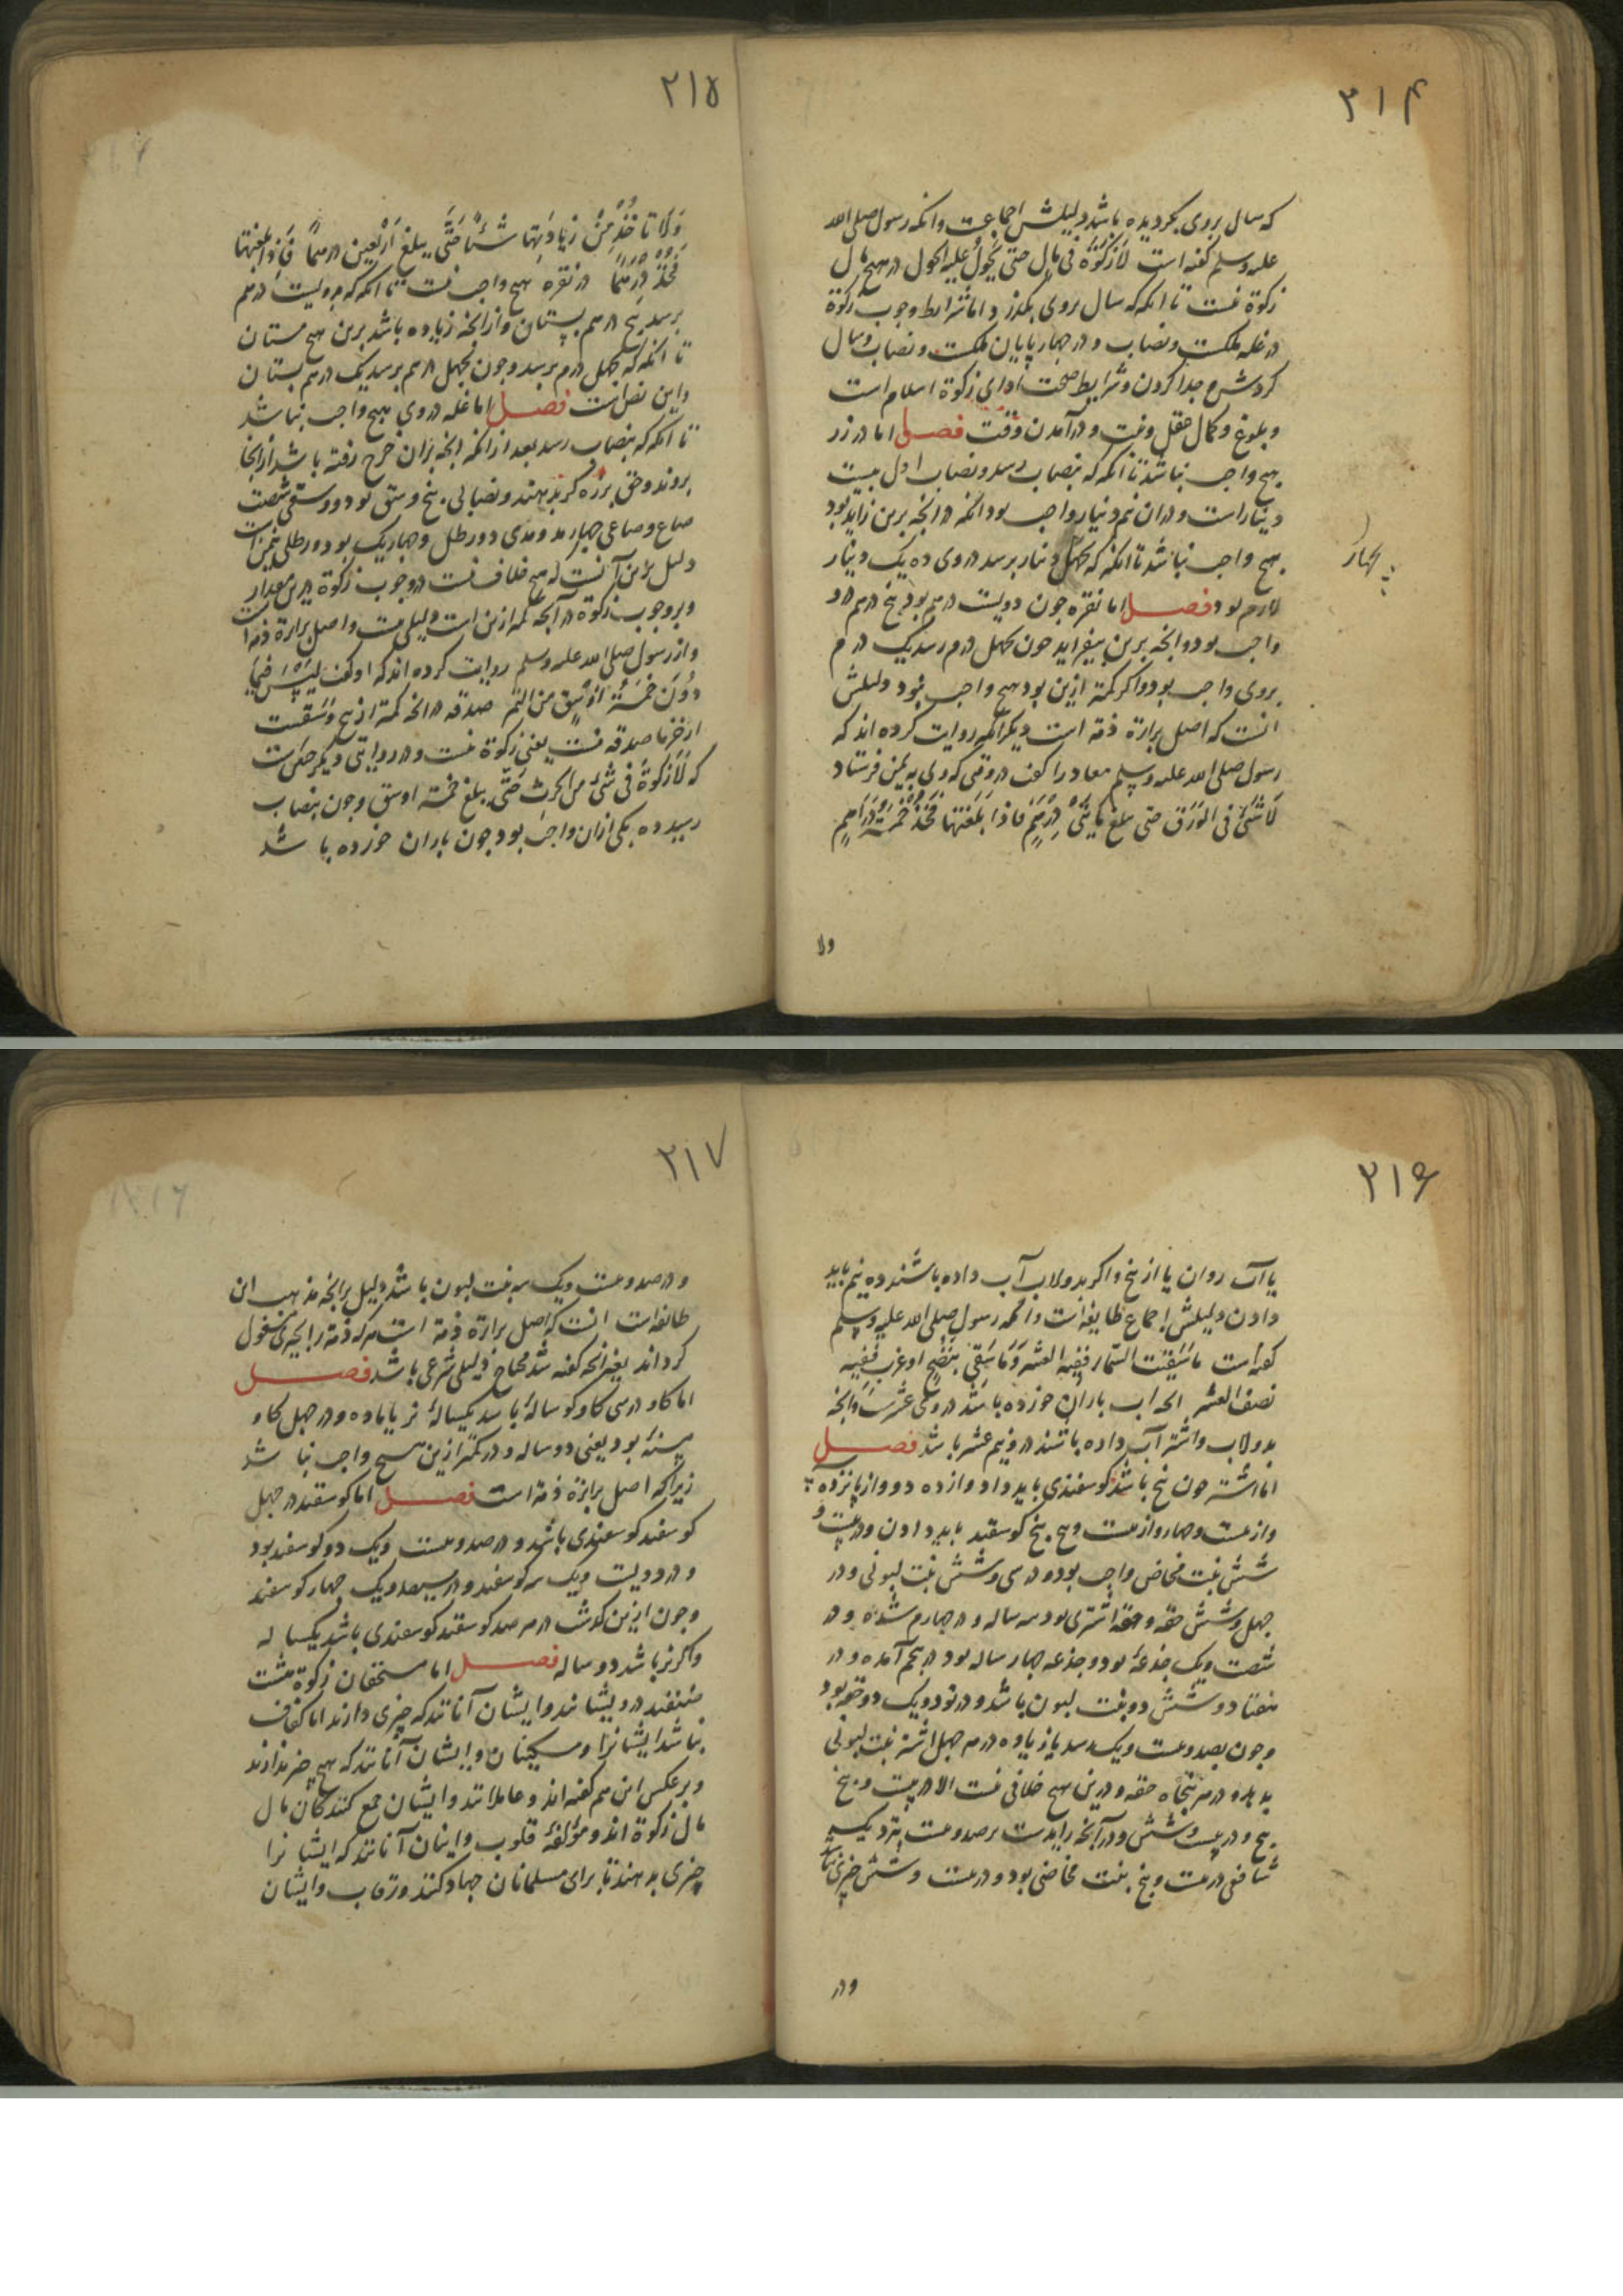 ۲۱۴
که سال بروی بگردیده باشد دلیلش اجماعست وانکه رسول صلی الله
علیه وسلم گفته است لَا زَکوٰةَ فی مالٍ حتی یَحُولُ علیه الحول در هیچ مال
زکوة نیست تا انکه که سال بروی بگذرد و اما شرایط وجوب زکوة
در غله ملکست ونصاب و در چهار پایان ملکست ونصاب وسال
کردش جدا کردن وشرایط صحت ادای زکوة اسلام است
و بلوغ وکمال عقل ونیت و در آمدن وقت فصل اما در زر
هیچ واجب نباشد تا انکه که بنصاب رسد ونصاب اول بیست
دینار است ودران نیم دینار واجب بود انکه در انچه برین زاید بود
هیچ واجب نباشد تا انکه که بچهل دینار برسد دروی ده یک دینار
بچهار
لازم بود فصل اما نقره چون دویست درهم بود پنج درهم درو
واجب بود و انچه برین بیفزاید چون بچهل درم رسد یک درم
بروی واجب بود و اگر کمتر ازین بود هیچ واجب نبود دلیلش
انست که اصل براءة ذمه است دیگر انکه روایت کرده اند که
رسول صلی الله علیه وسلم معاد را گفت در وقتی که ویرا به یمن فرستاد
لَا شَئَ فی الوَرَق حتی یبلغ مایتَی دِرْهَمٍ فاذا بَلَغَتها فَخُذْ خَمْسَةَ دَرَاهِمٍ
ولا
۲۱۵
وَلَا تاخُذْ مِنْ زیادَتِها شَئاً حَتَّی یبلغ اَرْبَعین درهماً فَاِذَا بلغتها
فَخُذْ دِرْهَماً در نقره هیچ واجب نیست تا انکه که بدویست درهم
برسد پنج درهم بستان وازانچه زیاده باشد برین هیچ مستان
تا انکه که بچهل درم برسد وچون بچهل درهم برسد یک درهم بستان
واین نص است فصل اما غله دروی هیچ واجب نباشد
تا انکه که بنصاب رسد بعد ازانکه انچه بران خرج رفته باشد ازانجا
بروند وحق برزه گر بدهند ونصابی پنج وسق بود و وسقی شصت
صاع وصاعی چهار مد ومدی دو رطل وچهار یک بود و رطلی
دلیل برین آنست که هیچ خلاف نیست در وجوب زکوة برین مقدار
وبر وجوب زکوة در آنچه کمتر ازین است دلیلی نیست واصل براءة ذمه است
واز رسول صلی الله علیه وسلم روایت کرده اند که او گفت لَیْسَ فیما
دُوَنَ خَمْسَةِ اَوْسُقٍ من التَّمْرِ صدقه در انچه کمتر از پنج وَسْقست
از خرما صدقه نیست یعنی زکوة نیست ودر روایتی دیگر چنین است
که لَا زَکوٰةَ فی شَئٍ من الحرث حَتَّی یبلغ خمسة اوسق وچون بنصاب
رسید ده یکی ازان واجب بود چون باران خورده باشد
۲۱۶
یا آب روان یا از یخ واگر بدولاب آب داده باشند ده نیم باید
دادن دلیلش اجماع طایفه است وانکه رسول صلی الله علیه وسلم
گفته است ماسَقَت السَّماء ففیه العشر وَمَاسُقِیَ بِنَضْحٍ او غرب ففیه
نصف العشر انچه اب باران خورده باشد دروی عشرست وانچه
بدولاب واشتر آب داده باشند درو نیم عشر باشد فصل
اما اشتر چون پنج باشد گوسفندی باید داد و از ده دو و از پانزده سه
واز بیست وچهار واز بیست وپنج پنج گوسفند باید دادن ودر بیست و
شش بنت مخاض واجب بود و در سی وشش بنت لبونی و در
چهل وشش حقه و حقه اشتری بود سه ساله و در چهارم شده و در
شصت ویک جذعۀ بود و جذعه چهار ساله بود در پنجم آمده و در
هفتاد و شش دو بنت لبون باشد و در نود ویک دو حقه بود
وچون بصد وبیست ویک رسد یا زیاده در هر چهل اشتر بنت لبونی
بدهد و در هر پنجاه حقه و درین هیچ خلافی نیست الا در بیست و پنج
پنج و در بیست وشش و در آنچه زایدست بر صد وبیست نزدیک
شافعی در بیست وپنج بنت مخاضی بود و در بیست وشش چیزی نباشد
ودر
۲۱۷
و در صد وبیست ویک سه بنت لبون باشد دلیل بر انچه مذهب ان
طایفه است انست که اصل براءة ذمه است هرکه ذمه را بچیزی مشغول
گرداند بغیر انچه گفته شد محتاج دلیلی شرعی باشد فصل
اما گاو در سی گاو گوسالۀ باشد یکسالۀ نر یا ماده و در چهل گاو
مسنۀ بود یعنی دو ساله و در کمتر ازین هیچ واجب نباشد
زیرا که اصل براءة ذمه است فصل اما گوسفند در چهل
گوسفند گوسفندی باشد و در صد وبیست ویک دو گوسفند بود
و در دویست ویک سه گوسفند و در سیصد ویک چهار گوسفند
وچون ازین گذشت در هر صد گوسفند گوسفندی باشد یکساله
واگر نر باشد دو ساله فصل اما مستحقان زکوة هشت
صنفند درویشانند وایشان آنانند که چیزی دارند اما کفاف
نباشد ایشانرا ومسکینان وایشان آنانند که هیچ چیز ندارند
وبر عکس این هم گفته اند وعاملانند وایشان جمع کنندگان مال
مال زکوة اند ومؤلفۀ قلوب واینان آنانند که ایشانرا
چیزی بدهند تا برای مسلمانان جهاد کنند ورقاب وایشان